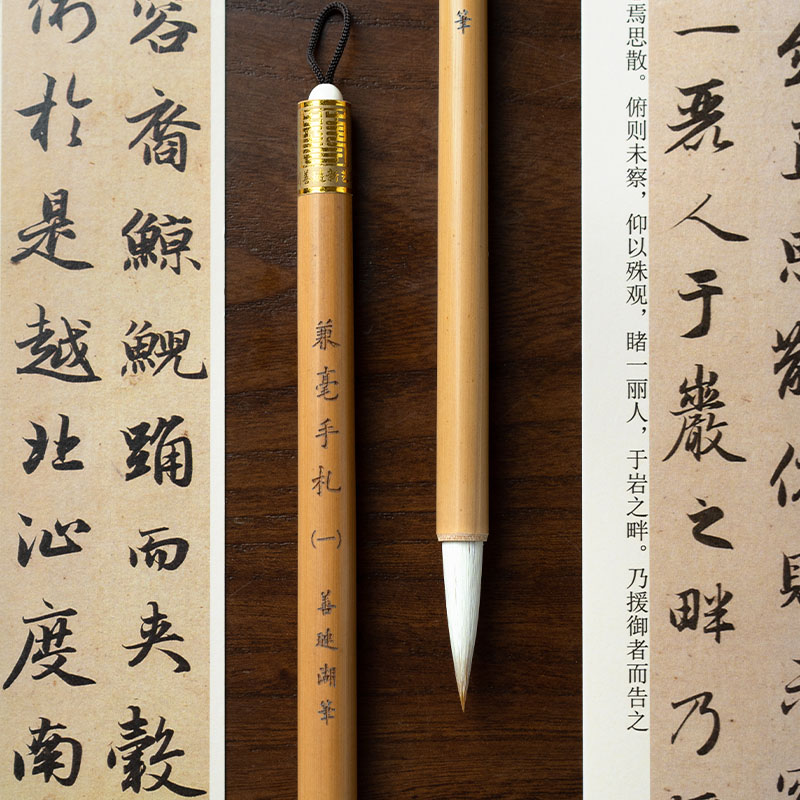 思散俯則未
一麗人于巖之畔乃
焉思散。俯则未察，仰以殊观，睹一丽人，于岩之畔。乃援御者而告之
筆
兼毫手札(一) 善璉湖筆
容裔鯨鯢踊而夾轂
於是越北沚度南